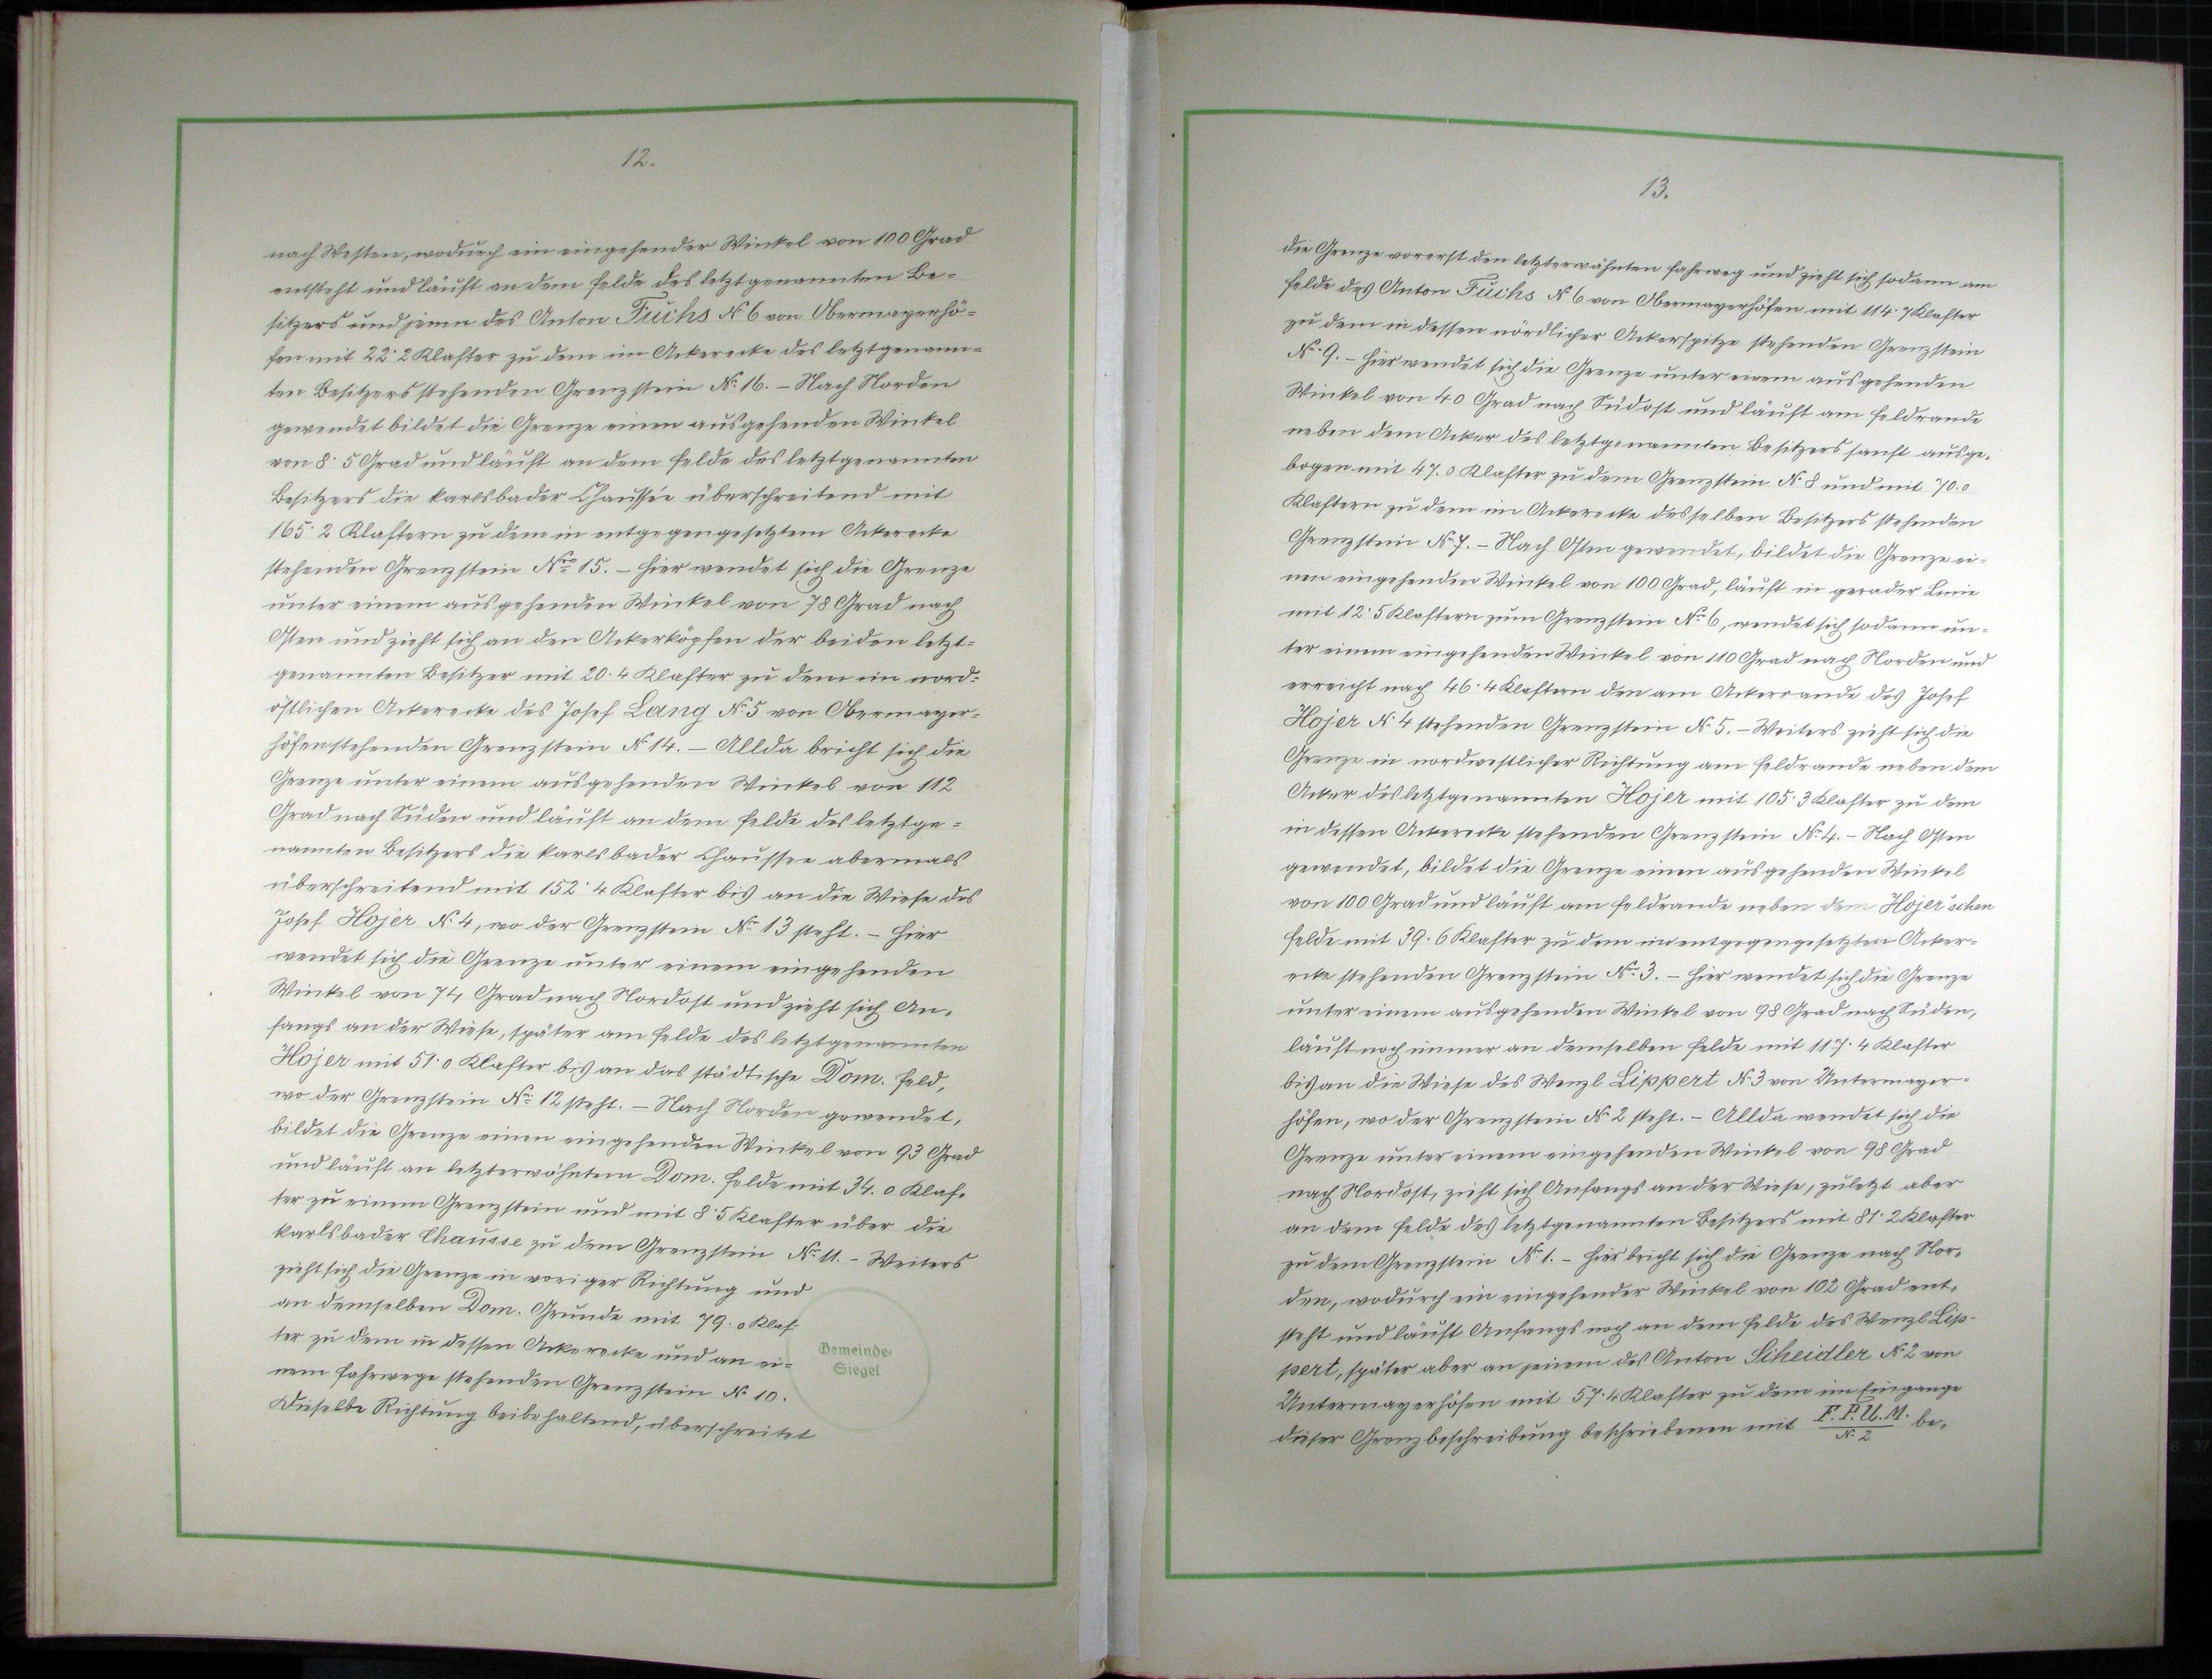 12.
nach Westen, wodurch ein eingehender Winkel von 100 Grad
entsteht und läuft an dem Felde des letztgenannten Be-
sitzers und jenem des Anton Fuchs No 6 von Obermayerhö-
fen mit 22·2 Klafter zu dem im Ackerecke des letztgenann-
ten Besitzers stehenden Grenzstein No 16. – Nach Norden
gewendet bildet die Grenze einen ausgehenden Winkel
von 8·5 Grad und läuft an dem Felde des letztgenannten
Besitzers die karlsbader Chaussée überschreitend mit
165·2 Klaftern zu dem in entgegengesetztem Ackerecke
stehenden Grenzstein Nro 15. – Hier wendet sich die Grenze
unter einem ausgehenden Winkel von 78 Grad nach
Osten und zieht sich an den Ackerköpfen der beiden letzt-
genannten Besitzer mit 20·4 Klafter zu dem im nord-
östlichen Ackerecke des Josef Lang No 5 von Obermayer-
höfen stehenden Grenzstein No 14. – Allda bricht sich die
Grenze unter einem ausgehenden Winkel von 112
Grad nach Süden und läuft an dem Felde des letztge-
nannten Besitzers die karlsbader Chaussee abermals
überschreitend mit 152·4 Klafter bis an die Wiese des
Josef Hojer No 4, wo der Grenzstein No 13 steht. – Hier
wendet sich die Grenze unter einem eingehenden
Winkel von 74 Grad nach Nordost und zieht sich An-
fangs an der Wiese, später am Felde des letztgenannten
Hojer mit 51·0 Klafter bis an das städtische Dom. Feld,
wo der Grenzstein No 12 steht. – Nach Norden gewendet,
bildet die Grenze einen eingehenden Winkel von 93 Grad
und läuft an letzterwähntem Dom. Felde mit 34·0 Klaf-
ter zu einem Grenzstein und mit 8·5 Klafter über die
karlsbader Chausse zu dem Grenzstein No 11. – Weiters
zieht sich die Grenze in voriger Richtung und
an demselben Dom. Grunde mit 79·0 Klaf-
ter zu dem in dessen Ackerecke und an ei-
nem Fahrwege stehenden Grenzstein No 10.
Dieselbe Richtung beibehaltend, überschreitet
Gemeinde-
Siegel
13.
die Grenze vorerst den letzterwähnten Fahrweg und zieht sich sodann am
Felde des Anton Fuchs No 6 von Obermayerhöfen mit 114·7 Klafter
zu dem in dessen nördlicher Ackerspitze stehenden Grenzstein
No 9. – Hier wendet sich die Grenze unter einem ausgehenden
Winkel von 40 Grad nach Südost und läuft am Feldrande
neben dem Acker des letztgenannten Besitzers sanft ausge-
bogen mit 47·0 Klafter zu dem Grenzstein No 8 und mit 70·0
Klaftern zu dem im Ackerecke desselben Besitzers stehenden
Grenzstein No 7. – Nach Osten gewendet, bildet die Grenze ei-
nen eingehenden Winkel von 100 Grad, läuft in gerader Linie
mit 12·5 Klaftern zum Grenzstein No 6, wendet sich sodann un-
ter einem eingehenden Winkel von 110 Grad nach Norden und
erreicht nach 46·4 Klaftern den am Ackerrande des Josef
Hojer No 4 stehenden Grenzstein No 5. – Weiters zieht sich die
Grenze in nordwestlicher Richtung am Feldrande neben dem
Acker des letztgenannten Hojer mit 105·3 Klafter zu dem
in dessen Ackerecke stehenden Grenzstein No 4. – Nach Osten
gewendet, bildet die Grenze einen ausgehenden Winkel
von 100 Grad und läuft am Feldrande neben dem Hojer'schen
Felde mit 39·6 Klafter zu dem im entgegengesetzten Acker-
ecke stehenden Grenzstein No 3. – Hier wendet sich die Grenze
unter einem ausgehenden Winkel von 98 Grad nach Süden,
läuft noch immer an demselben Felde mit 117·4 Klafter
bis an die Wiese des Wenzl Lippert No 3 von Untermayer-
höfen, wo der Grenzstein No 2 steht. – Allda wendet sich die
Grenze unter einem eingehenden Winkel von 98 Grad
nach Nordost, zieht sich Anfangs an der Wiese, zuletzt aber
an dem Felde des letztgenannten Besitzers mit 81·2 Klafter
zu dem Grenzstein No 1. – Hier bricht sich die Grenze nach Nor-
den, wodurch ein eingehender Winkel von 102 Grad ent-
steht und läuft Anfangs noch an dem Felde des Wenzl Lip-
pert, später aber an jenem des Anton Scheidler No 2 von
Untermayerhöfen mit 57·4 Klafter zu dem im Eingange
dieser Grenzbeschreibung beschriebenen mit F. P. U. M. / No 2 be-